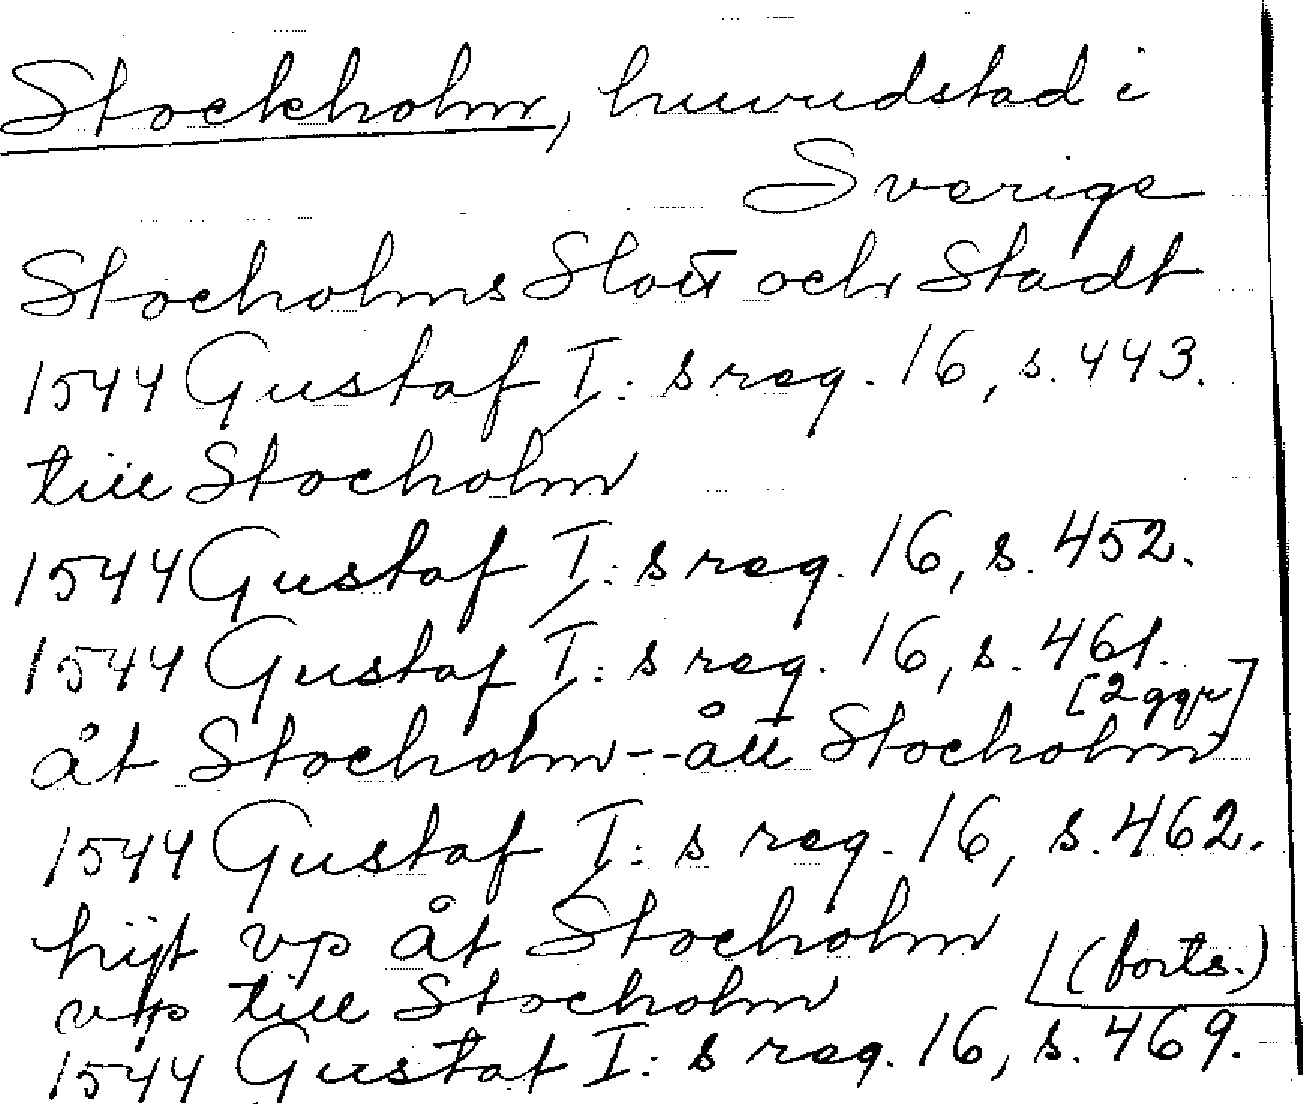 Stockholm, huvudstad i
Sverige
Stocholms Slott och Stadt
1544 Gustaf I:s reg. 16, s. 443.
till Stocholm
1544 Gustaf I:s reg. 16, s. 452.
1544 Gustaf I:s reg. 16, s. 461.
[2 ggr]
åt Stocholm--ått Stocholm
1544 Gustaf I:s reg. 16, s. 462.
hijt vp åt Stocholm
vp till Stocholm
(forts.)
1544 Gustaf I:s reg. 16, s. 469.